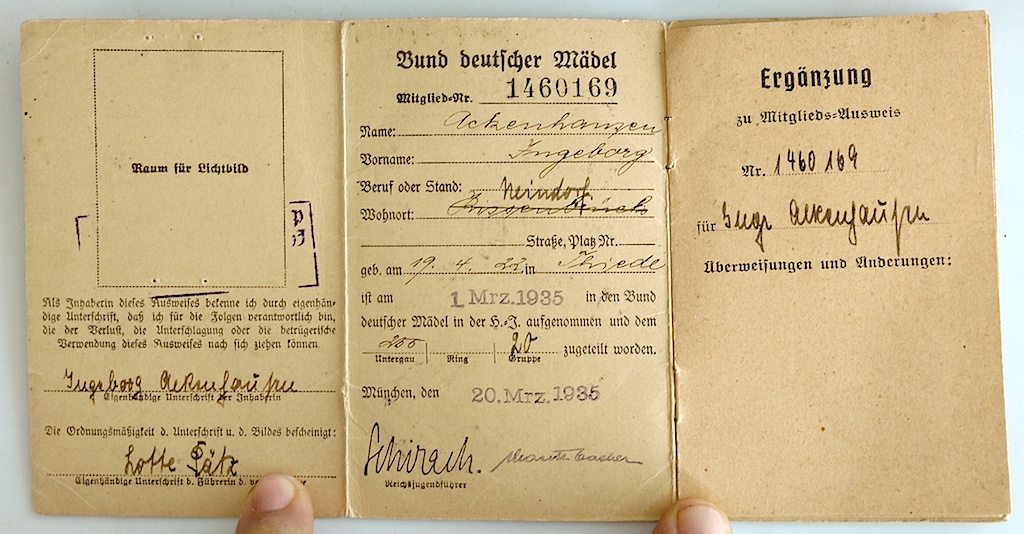 Raum für Lichtbild
Als Inhaberin dieses Ausweises bekenne ich durch eigenhän-
dige Unterschrift, daß ich für die Folgen verantwortlich bin,
die der Verlust, die Unterschlagung oder die betrügerische
Verwendung dieses Ausweises nach sich ziehen können.
Ingeborg Ackenhausen
Eigenhändige Unterschrift der Inhaberin
Die Ordnungsmäßigkeit d. Unterschrift u. d. Bildes bescheinigt:
Lotte Pätz
Eigenhändige Unterschrift d. Führerin d.
Bund deutscher Mädel
Mitglied-Nr. 1460169
Name: Ackenhausen
Vorname: Ingeborg
Beruf oder Stand:
Neindorf
Wohnort:
Straße, Platz Nr.
geb. am 19. 4. 22 in Thiede
ist am 1 Mrz. 1935 in den Bund
deutscher Mädel in der H.-J. aufgenommen und dem
200 20 zugeteilt worden.
Untergau Ring Gruppe
München, den 20. Mrz. 1935
Schirach.
Reichsjugendführer
Ergänzung
zu Mitglieds-Ausweis
Nr. 1460 169
für Inge Ackenhausen
Überweisungen und Änderungen: